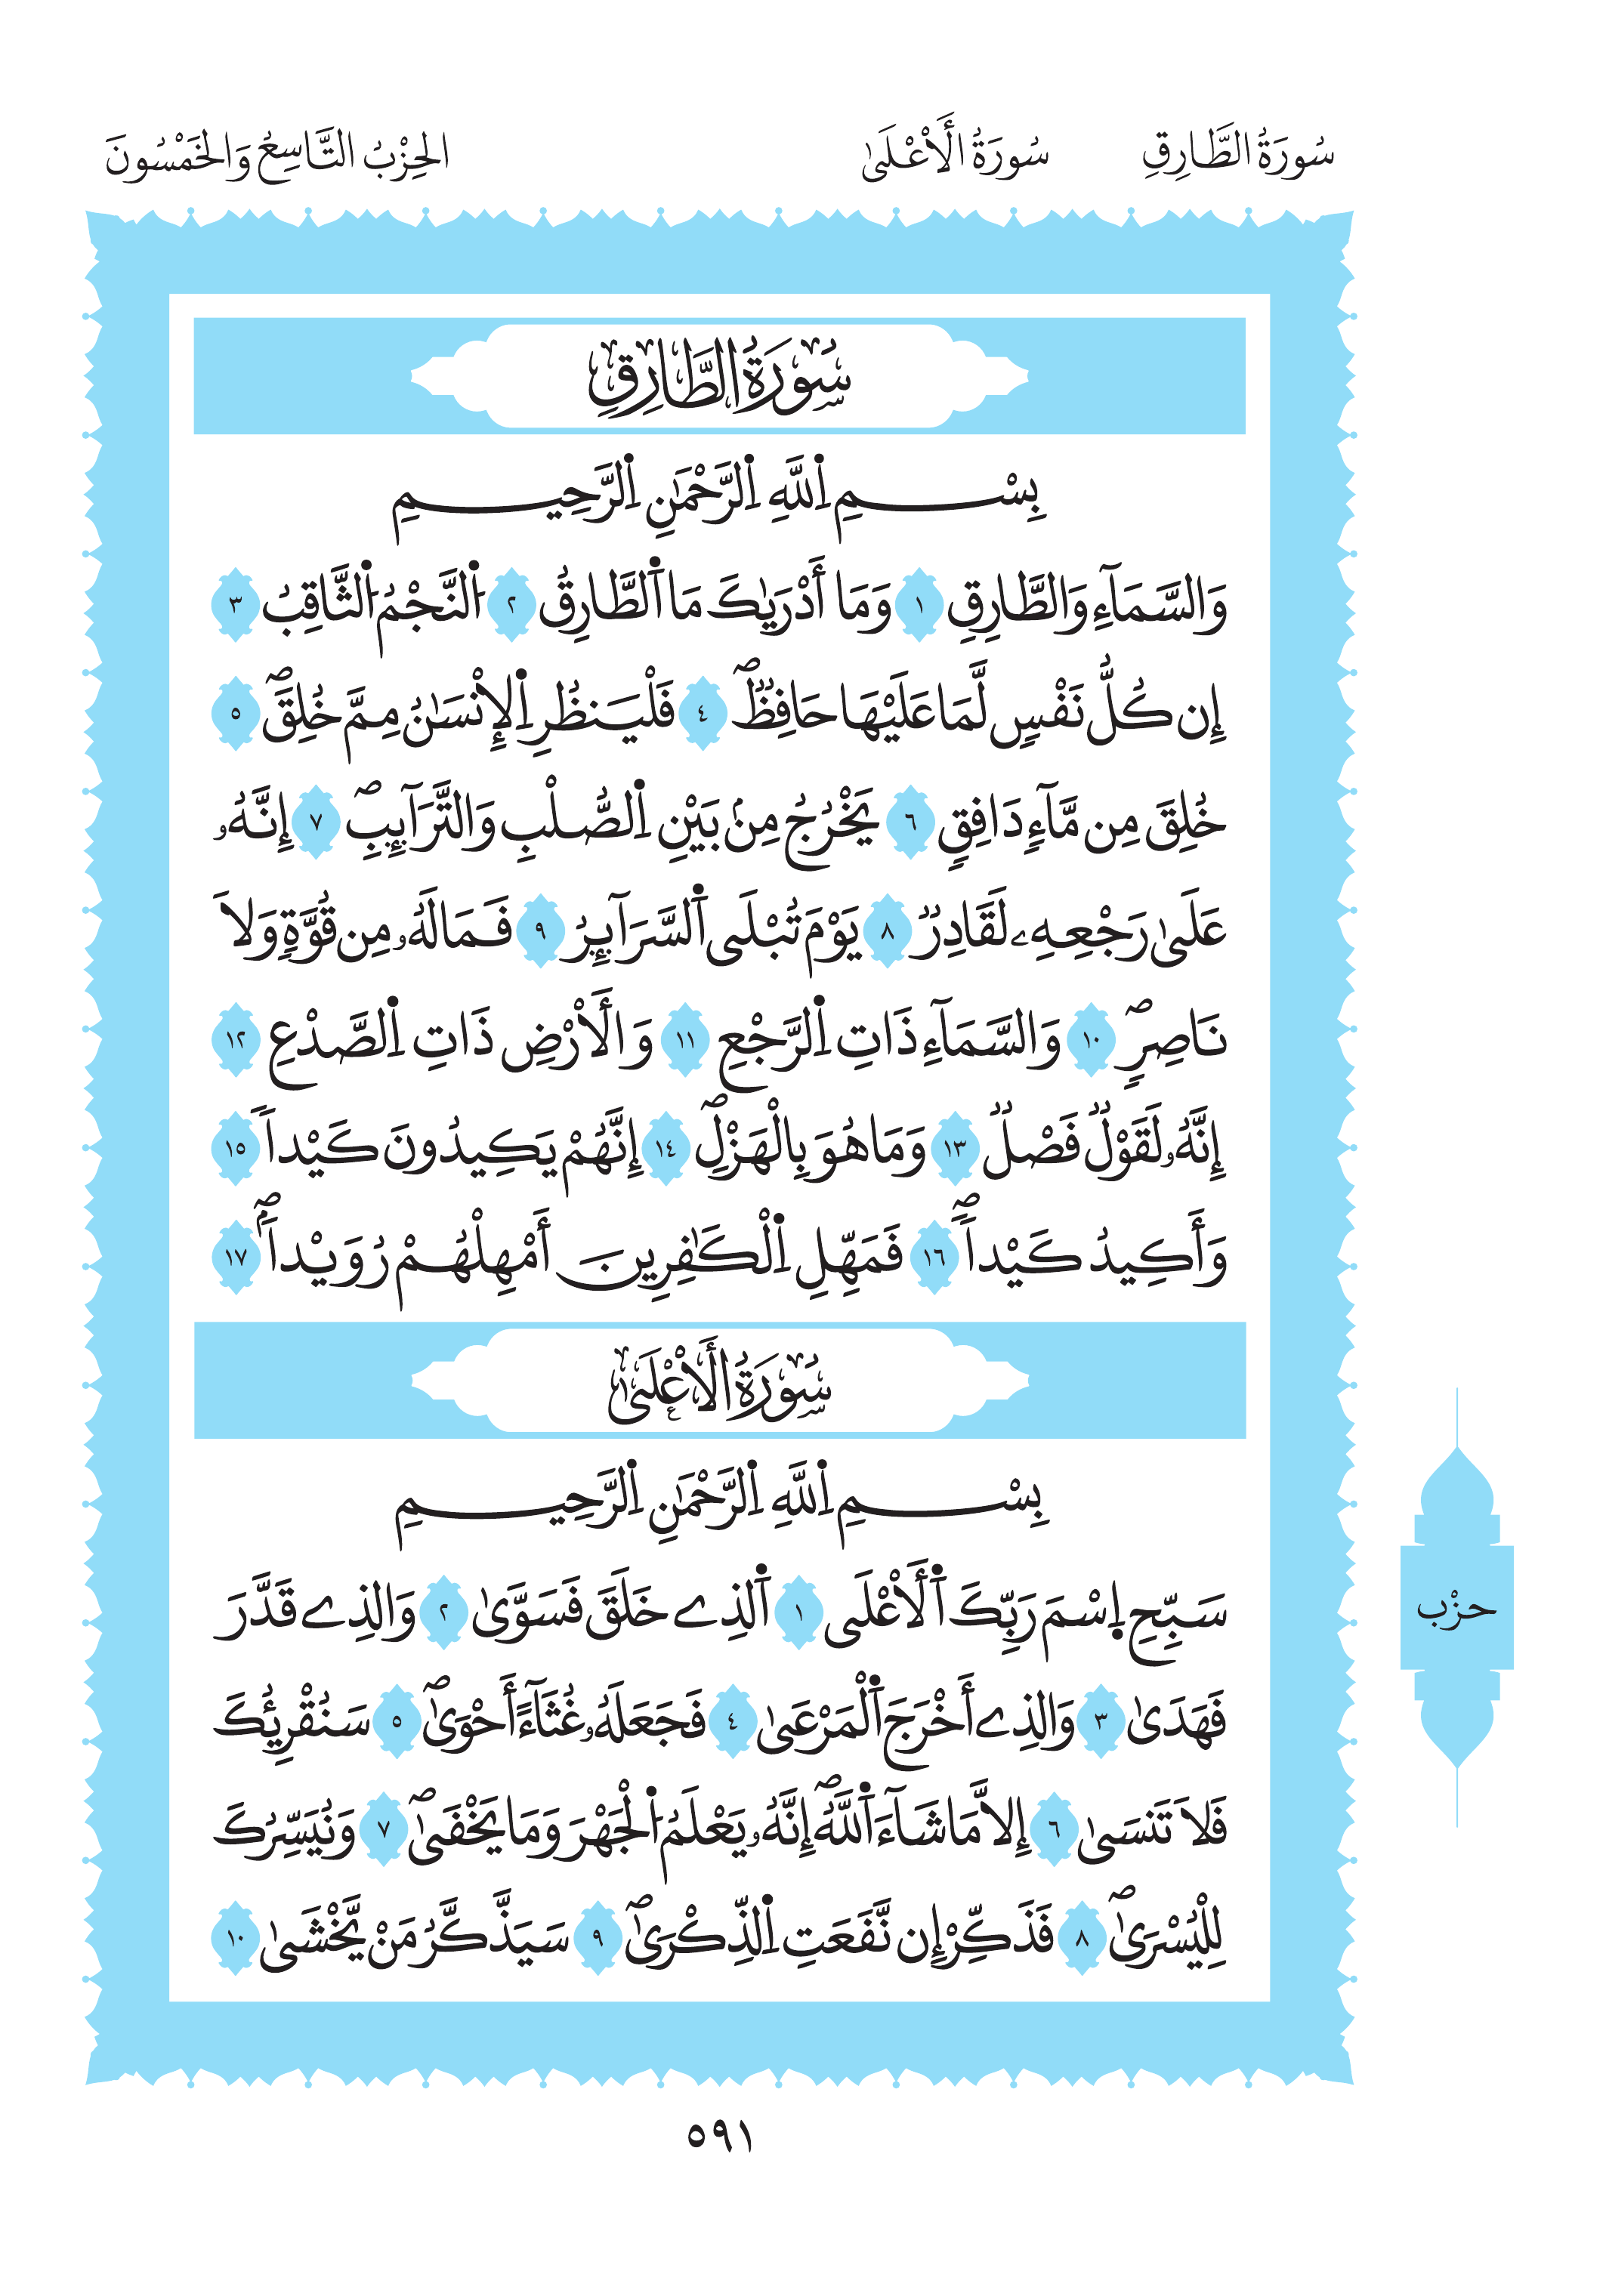 سُورَةُ الطَّارِقِ سُورَةُ الَأعْلَىٰ الحِزْبُ التَّاسِعُ وَالخَمْسُونَ
سُورَةُ الطَّارِقِ
بِسْمِ اِ۬للَّهِ اِ۬لرَّحْمَٰنِ اِ۬لرَّحِيمِ
وَالسَّمَآءِ وَالطَّارِقِ ١ وَمَآ أَدْرَيٰكَ مَا اَ۬لطَّارِقُ ٢ اُ۬لنَّجْمُ اُ۬لثَّاقِبُ ٣
إِن كُلُّ نَفْسٍ لَّمَا عَلَيْهَا حَافِظٌۖ ٤ فَلْيَنظُرِ اِ۬لِانْسَٰنُ مِمَّ خُلِقَۖ ٥
خُلِقَ مِن مَّآءٍ دَافِقٍ ٦ يَخْرُجُ مِنۢ بَيْنِ اِ۬لصُّلْبِ وَالتَّرَآئِبِۖ ٧ إِنَّهُۥ
عَلَىٰ رَجْعِهِۦ لَقَادِرٌ ٨ يَوْمَ تُبْلَى اَ۬لسَّرَآئِرُ ٩ فَمَا لَهُۥ مِن قُوَّةٍ وَلَا
نَاصِرٍۖ ١٠ وَالسَّمَآءِ ذَاتِ اِ۬لرَّجْعِ ١١ وَالَارْضِ ذَاتِ اِ۬لصَّدْعِ ١٢
إِنَّهُۥ لَقَوْلٌ فَصْلٌ ١٣ وَمَا هُوَ بِالْهَزْلِۖ ١٤ إِنَّهُمْ يَكِيدُونَ كَيْداً ١٥
وَأَكِيدُ كَيْداًۖ ١٦ فَمَهِّلِ اِ۬لْكَٰفِرِينَ أَمْهِلْهُمْ رُوَيْداَۢۖ ١٧
سُورَةُ الَأعْلَىٰ
بِسْمِ اِ۬للَّهِ اِ۬لرَّحْمَٰنِ اِ۬لرَّحِيمِ
سَبِّحِ اِ۪سْمَ رَبِّكَ اَ۬لَاعْلَى ١ اَ۬لذِے خَلَقَ فَسَوَّىٰ ٢ وَالذِے قَدَّرَ
فَهَدَىٰ ٣ وَالذِے أَخْرَجَ اَ۬لْمَرْعَىٰ ٤ فَجَعَلَهُۥ غُثَآءً أَحْوَىٰۖ ٥ سَنُقْرِئُكَ
فَلَا تَنسَىٰ ٦ إِلَّا مَا شَآءَ اَ۬للَّهُۖ إِنَّهُۥ يَعْلَمُ اُ۬لْجَهْرَ وَمَا يَخْفَىٰۖ ٧ وَنُيَسِّرُكَ
لِلْيُسْرَىٰۖ ٨ فَذَكِّرْ إِن نَّفَعَتِ اِ۬لذِّكْرَىٰۖ ٩ سَيَذَّكَّرُ مَنْ يَّخْشَىٰ ١٠
حزْب
٥٩١